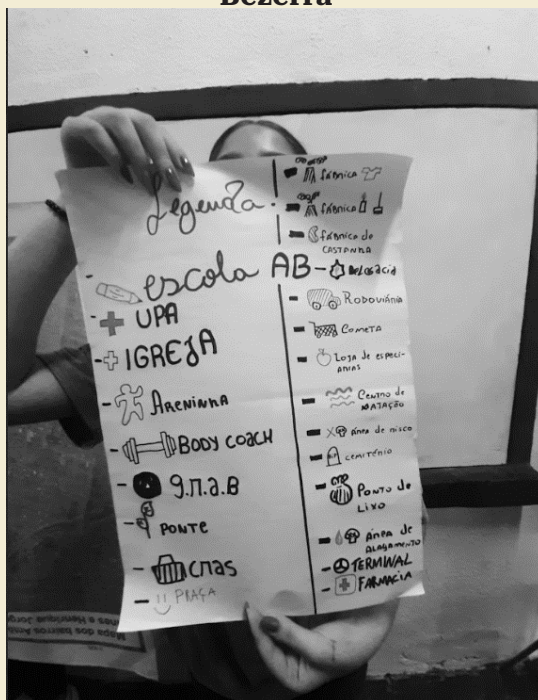 Bezerra
Legenda
escola AB
UPA
IGREJA
ARENINHA
BODY COACH
g.n.a.B
PONTE
CRAS
PRAÇA
fábrica
fábrica
fábrica de
CASTANHA
Delegacia
RODOVIÁRIA
COMETA
Loja de especi-
arias
Centro de
NATAÇÃO
área de risco
cemitério
PONTO de
LIXO
área de
ALAGAMENTO
TERMINAL
FARMACIA
Mapa dos bairros
e Henrique Jorge